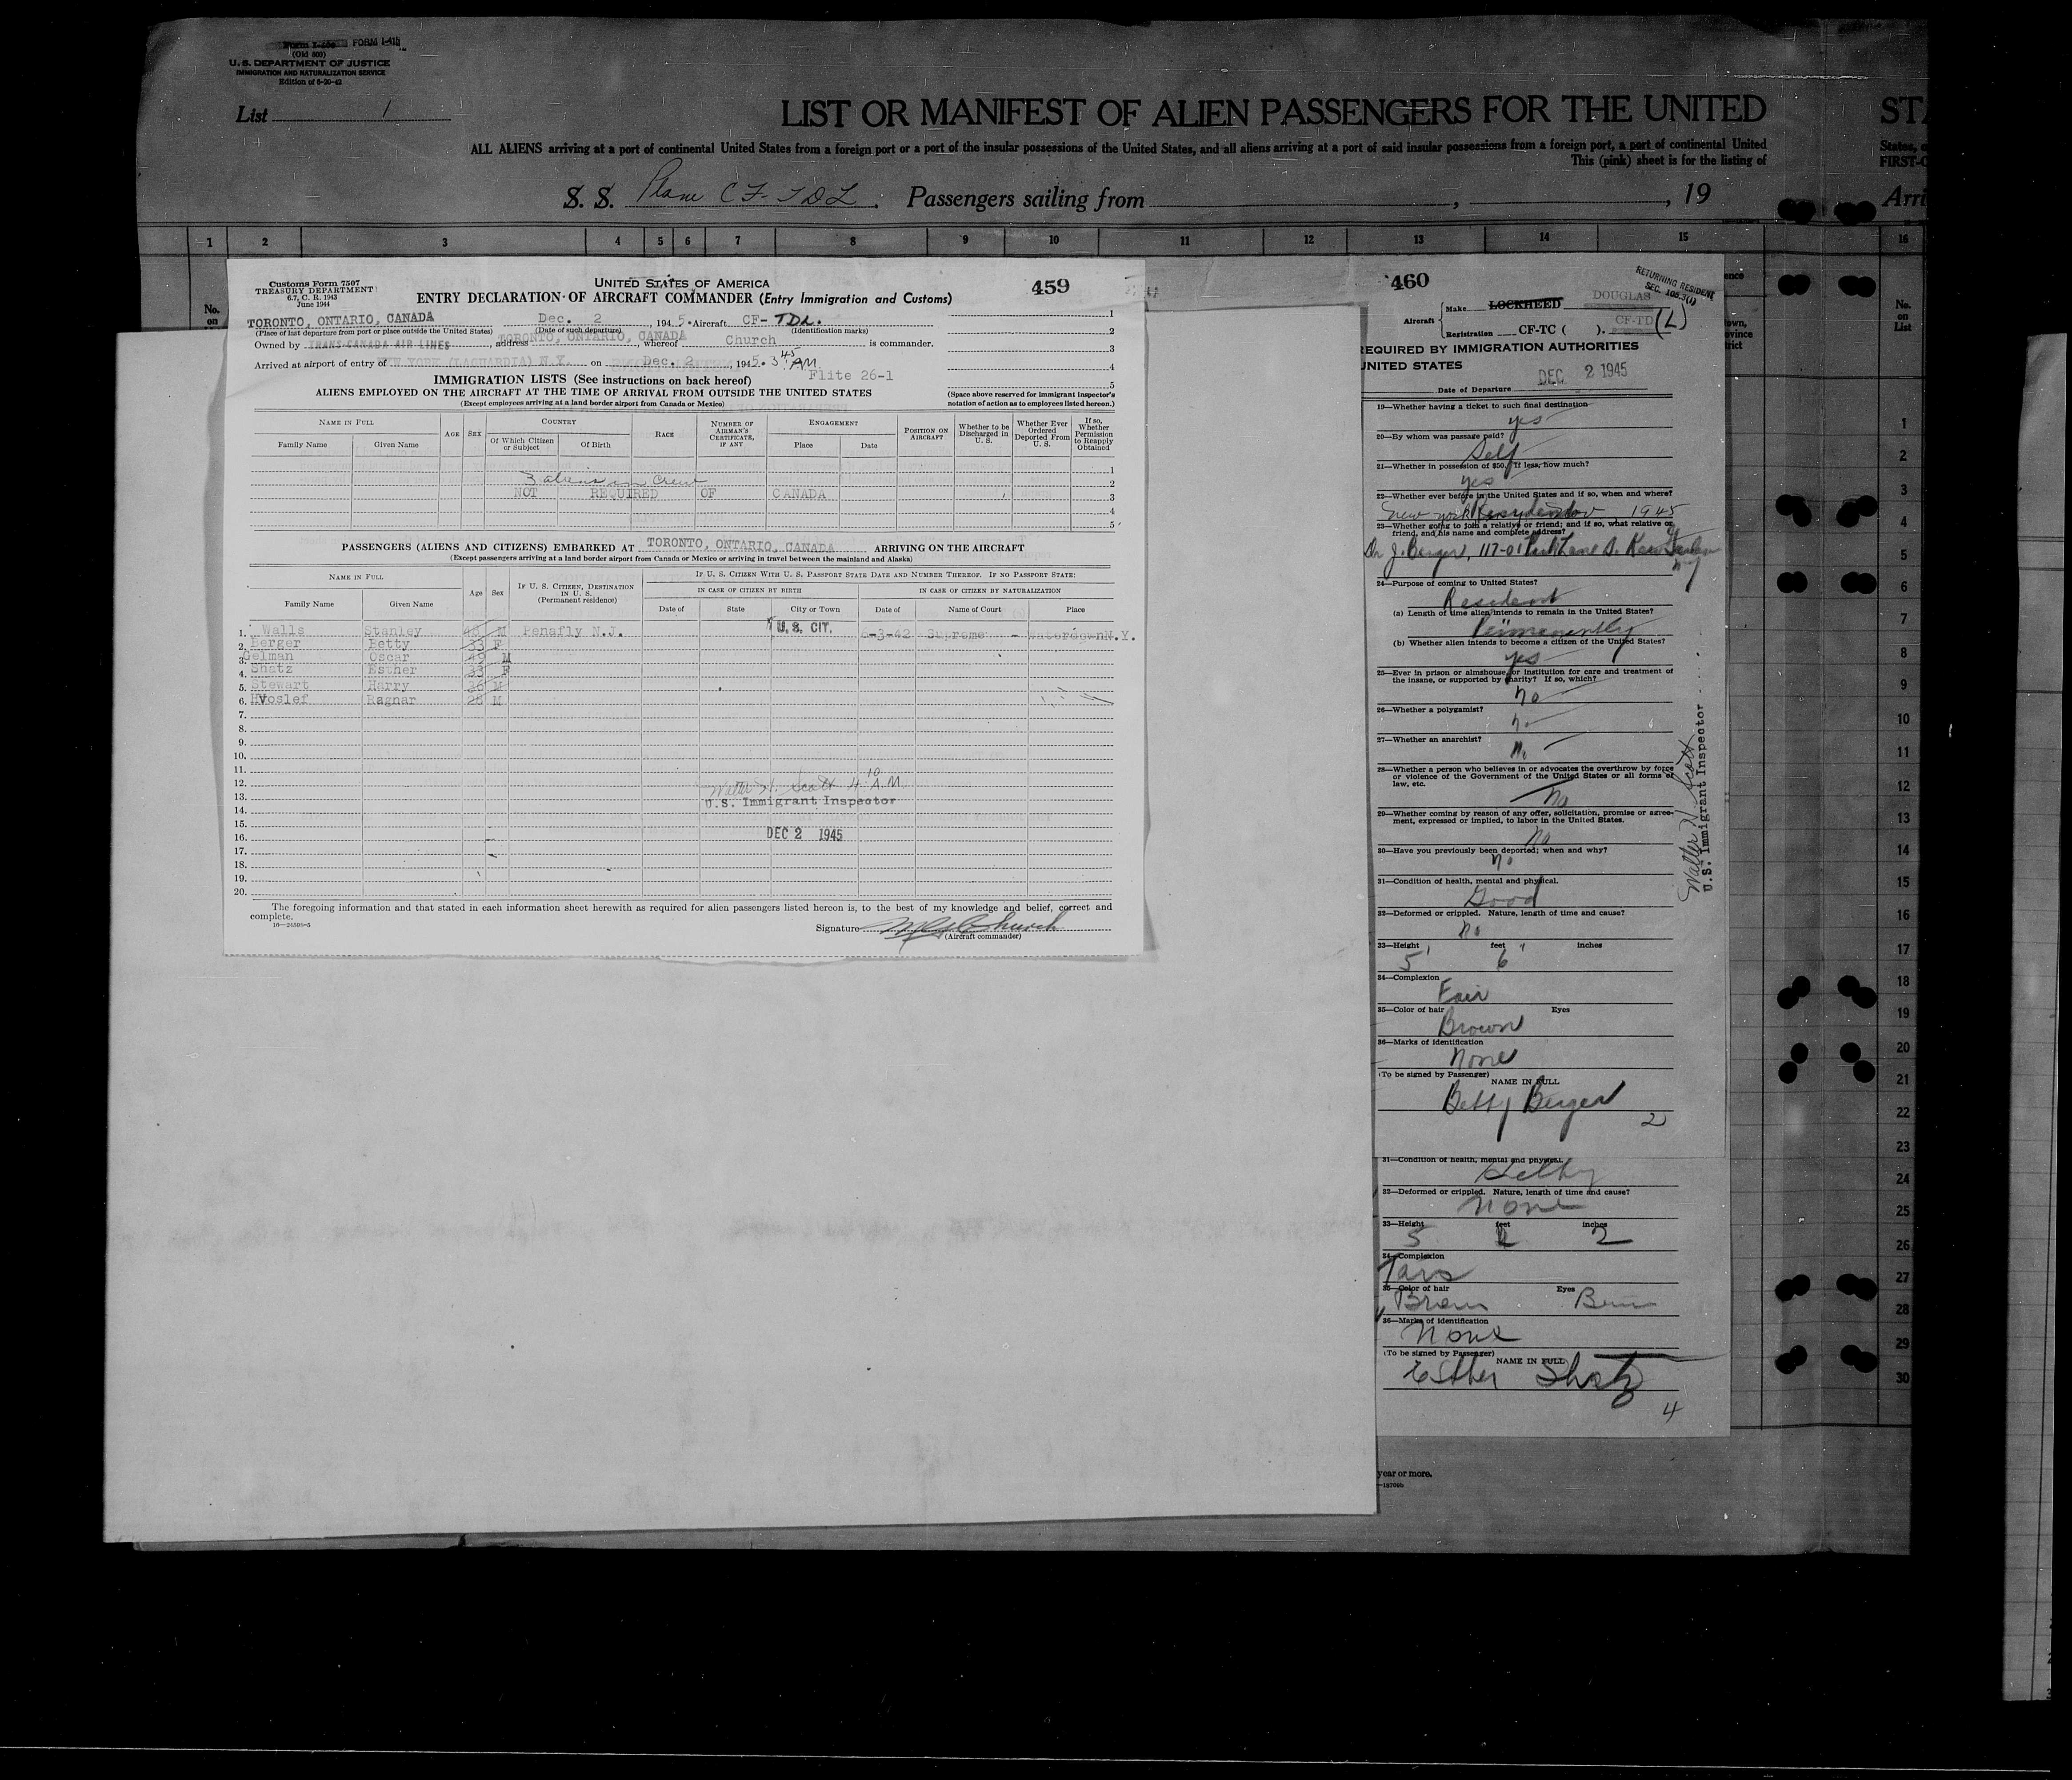 Form I-466 FORM I-415
(Old 500)
U. S. DEPARTMENT OF JUSTICE
IMMIGRATION AND NATURALIZATION SERVICE
Edition of 5-20-42
List 1
LIST OR MANIFEST OF ALIEN PASSENGERS FOR THE UNITED
ALL ALIENS arriving at a port of continental United States from a foreign port or a port of the insular possessions of the United States, and all aliens arriving at a port of said insular possessions from a foreign port, a port of continental United
This (pink) sheet is for the listing of
S. S. Plane CF-TDL. Passengers sailing from , , 19
STA
States, o
FIRST-C
Arri
1 2 3 4 5 6 7 8 9 10 11 12 13 14 15 16
Customs Form 7507
TREASURY DEPARTMENT
6.7, C. R. 1943
June 1944
UNITED STATES OF AMERICA
459
ENTRY DECLARATION OF AIRCRAFT COMMANDER (Entry Immigration and Customs)
TORONTO, ONTARIO, CANADA Dec. 2 , 1945. Aircraft CF- TDL.
(Place of last departure from port or place outside the United States) (Date of such departure) (Identification marks)
Owned by TRANS-CANADA AIR LINES , address TORONTO, ONTARIO, CANADA , whereof Church is commander.
Arrived at airport of entry of NEW YORK (LAGUARDIA) N.Y. on Dec. 2 , 1945. 3 45 AM.
Flite 26-1
1
2
3
4
5
IMMIGRATION LISTS (See instructions on back hereof)
ALIENS EMPLOYED ON THE AIRCRAFT AT THE TIME OF ARRIVAL FROM OUTSIDE THE UNITED STATES
(Except employees arriving at a land border airport from Canada or Mexico)
(Space above reserved for immigrant Inspector's
notation of action as to employees listed hereon.)
NAME IN FULL AGE SEX COUNTRY RACE NUMBER OF AIRMAN'S CERTIFICATE, IF ANY ENGAGEMENT POSITION ON AIRCRAFT Whether to be Discharged in U. S. Whether Ever Ordered Deported From U. S. If so, Whether Permission to Reapply Obtained
Family Name Given Name Of Which Citizen or Subject Of Birth Place Date
1
3 aliens in crew 2
NOT REQUIRED OF CANADA 3
4
5
PASSENGERS (ALIENS AND CITIZENS) EMBARKED AT TORONTO, ONTARIO, CANADA ARRIVING ON THE AIRCRAFT
(Except passengers arriving at a land border airport from Canada or Mexico or arriving in travel between the mainland and Alaska)
NAME IN FULL Age Sex IF U. S. CITIZEN, DESTINATION IN U. S. (Permanent residence) IF U. S. CITIZEN WITH U. S. PASSPORT STATE DATE AND NUMBER THEREOF. IF NO PASSPORT STATE:
IN CASE OF CITIZEN BY BIRTH IN CASE OF CITIZEN BY NATURALIZATION
Family Name Given Name Date of State City or Town Date of Name of Court Place
1. Walls Stanley M Penafly N.J. U.S. CIT. 6-3-42 Supreme - Waterdown N.Y.
2. Berger Betty 33 F
3. Gelman Oscar 49 M
4. Shatz Esther 33 F
5. Stewart Harry 36 M
6. Hvoslef Ragnar 28 M
7.
8.
9.
10.
11.
12.
13.
14.
15.
16.
17.
18.
19.
20.
Walter H. Scott 4 10 A.M.
U.S. Immigrant Inspector
DEC 2 1945
The foregoing information and that stated in each information sheet herewith as required for alien passengers listed hereon is, to the best of my knowledge and belief, correct and
complete.
Signature Church
(Aircraft commander)
460
RETURNING RESIDENT
SEC. 105.3(1)
Aircraft Make LOCKHEED DOUGLAS
Registration CF-TC ( ). CF-TD (L)
REQUIRED BY IMMIGRATION AUTHORITIES
UNITED STATES
Date of Departure DEC 2 1945
19—Whether having a ticket to such final destination
yes
20—By whom was passage paid?
Self
21—Whether in possession of $50. If less, how much?
yes
22—Whether ever before in the United States and if so, when and where?
New York 1945
23—Whether going to join a relative or friend; and if so, what relative or
friend, and his name and complete address?
Dr J. Berger, 117-01 Park Lane S. Kew Gardens
NY
24—Purpose of coming to United States?
Resident
(a) Length of time alien intends to remain in the United States?
Permanently
(b) Whether alien intends to become a citizen of the United States?
yes
25—Ever in prison or almshouse, or institution for care and treatment of
the insane, or supported by charity? If so, which?
no
26—Whether a polygamist?
no
27—Whether an anarchist?
No
28—Whether a person who believes in or advocates the overthrow by force
or violence of the Government of the United States or all forms of
law, etc.
No
29—Whether coming by reason of any offer, solicitation, promise or agree-
ment, expressed or implied, to labor in the United States.
No
30—Have you previously been deported; when and why?
no
31—Condition of health, mental and physical.
Good
32—Deformed or crippled. Nature, length of time and cause?
No
33—Height feet inches
5 6
34—Complexion
Fair
35—Color of hair Eyes
Brown
36—Marks of identification
None
(To be signed by Passenger)
NAME IN FULL
Betty Berger
2
Walter H. Scott
U.S. Immigrant Inspector
31—Condition of health, mental and physical.
32—Deformed or crippled. Nature, length of time and cause?
None
33—Height feet inches
5 2
34—Complexion
35—Color of hair Eyes
36—Marks of identification
None
(To be signed by Passenger)
NAME IN FULL
Esther Shatz
4
year or more.
No.
on
List
1
2
3
4
5
6
7
8
9
10
11
12
13
14
15
16
17
18
19
20
21
22
23
24
25
26
27
28
29
30